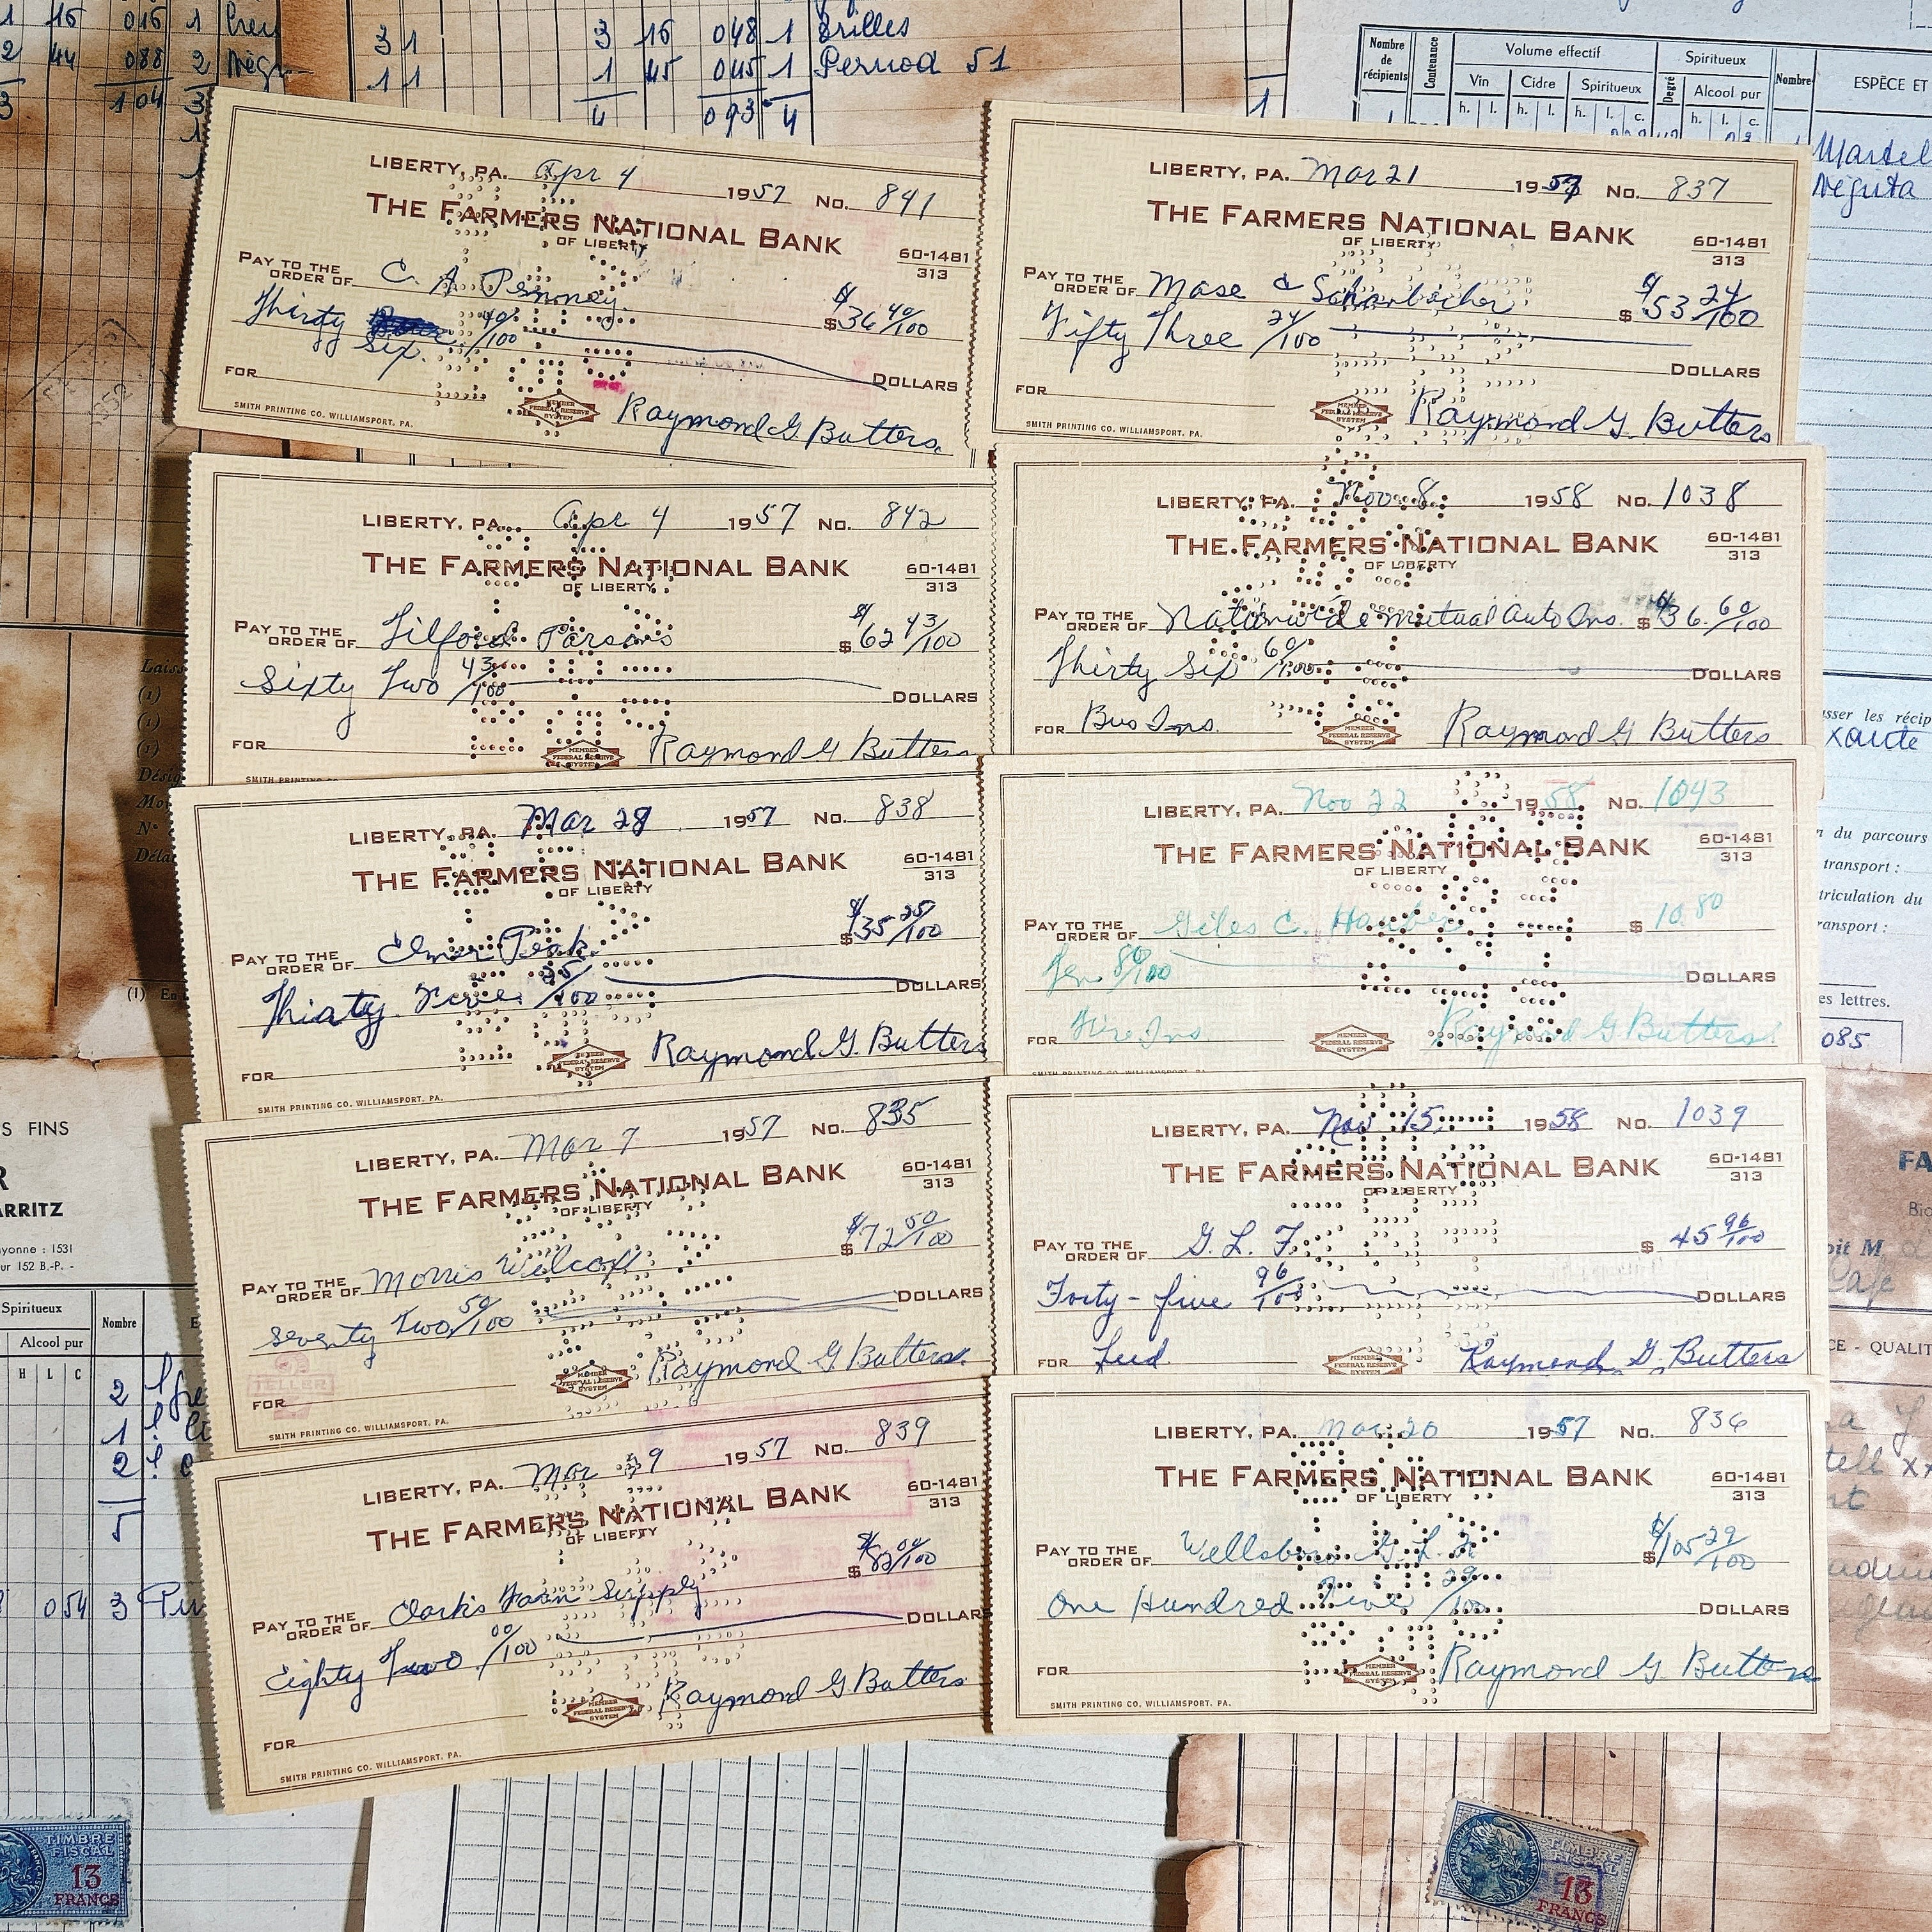 1 15 015 1
2 44 088 2 Négr
3 104 3
31 3 16 048 1 Brilles
11 1 45 045 1 Pernod 51
4 093 4
1
Nombre de récipients
Contenance
Volume effectif
Vin Cidre Spiritueux
h. l. h. l. h. l. c.
Spiritueux
Degré
Alcool pur
h. l. c.
Nombre
ESPÈCE ET
Martel
Négrita
LIBERTY, PA. Apr 4 1957 No. 841
THE FARMERS NATIONAL BANK
OF LIBERTY
60-1481
313
PAY TO THE
ORDER OF C. A. Pemoney $36 40/100
Thirty Six 40/100 DOLLARS
FOR
MEMBER
FEDERAL RESERVE
SYSTEM
Raymond G Butters
SMITH PRINTING CO. WILLIAMSPORT, PA.
LIBERTY, PA. Mar 21 1957 No. 837
THE FARMERS NATIONAL BANK
OF LIBERTY
60-1481
313
PAY TO THE
ORDER OF Mase & Schanbacher $53 24/100
Fifty Three 24/100 DOLLARS
FOR
MEMBER
FEDERAL RESERVE
SYSTEM
Raymond G. Butters
SMITH PRINTING CO. WILLIAMSPORT, PA.
LIBERTY, PA. Apr 4 1957 No. 842
THE FARMERS NATIONAL BANK
OF LIBERTY
60-1481
313
PAY TO THE
ORDER OF Tilford Parsons $62 43/100
Sixty Two 43/100 DOLLARS
FOR
MEMBER
FEDERAL RESERVE
SYSTEM
Raymond G Butters
SMITH PRINTING
LIBERTY, PA. Nov 8 1958 No. 1038
THE FARMERS NATIONAL BANK
OF LIBERTY
60-1481
313
PAY TO THE
ORDER OF Nationwide Mutual Auto Ins. $36.60/100
Thirty Six 60/100 DOLLARS
FOR Bus Ins.
MEMBER
FEDERAL RESERVE
SYSTEM
Raymond G Butters
LIBERTY, PA. Mar 28 1957 No. 838
THE FARMERS NATIONAL BANK
OF LIBERTY
60-1481
313
PAY TO THE
ORDER OF Elmer Peak $35 25/100
Thirty Five 25/100 DOLLARS
FOR
Raymond G. Butters
SMITH PRINTING CO. WILLIAMSPORT, PA.
LIBERTY, PA. Nov 22 1958 No. 1043
THE FARMERS NATIONAL BANK
OF LIBERTY
60-1481
313
PAY TO THE
ORDER OF Giles C. $10.80
Ten 80/100 DOLLARS
FOR Fire Ins
MEMBER
FEDERAL RESERVE
SYSTEM
Raymond G Butters
LIBERTY, PA. Mar 7 1957 No. 835
THE FARMERS NATIONAL BANK
OF LIBERTY
60-1481
313
PAY TO THE
ORDER OF Morris Wilcox $72 50/100
Seventy Two 50/100 DOLLARS
TELLER
FOR
MEMBER
FEDERAL RESERVE
SYSTEM
Raymond G Butters
SMITH PRINTING CO. WILLIAMSPORT, PA.
LIBERTY, PA. Nov 15 1958 No. 1039
THE FARMERS NATIONAL BANK
OF LIBERTY
60-1481
313
PAY TO THE
ORDER OF G. L. F. $45 96/100
Forty-five 96/100 DOLLARS
FOR Feed
MEMBER
FEDERAL RESERVE
SYSTEM
Raymond G. Butters
LIBERTY, PA. Mar 9 1957 No. 839
THE FARMERS NATIONAL BANK
OF LIBERTY
60-1481
313
PAY TO THE
ORDER OF Clark's Farm Supply $82 00/100
Eighty Two 00/100 DOLLARS
FOR
MEMBER
FEDERAL RESERVE
SYSTEM
Raymond G Butters
SMITH PRINTING CO. WILLIAMSPORT, PA.
LIBERTY, PA. Mar 20 1957 No. 836
THE FARMERS NATIONAL BANK
OF LIBERTY
60-1481
313
PAY TO THE
ORDER OF Wellsboro G. L. F. $105 29/100
One Hundred Five 29/100 DOLLARS
FOR
MEMBER
FEDERAL RESERVE
SYSTEM
Raymond G. Butters
SMITH PRINTING CO. WILLIAMSPORT, PA.
Laiss
(1)
(1)
(1)
Désig
Mo
N°
Déla
(1) En
S FINS
R
ARRITZ
yonne : 1531
ur 152 B.-P. -
Spiritueux
Alcool pur
H L C
Nombre
2
1
2
5
054 3
sser les récip
n du parcours
transport :
triculation du
ransport :
es lettres.
085
FA
Bio
oit M
Cafe
CE - QUALIT
TIMBRE
FISCAL
13
FRANCS
TIMBRE
FISCAL
13
FRANCS